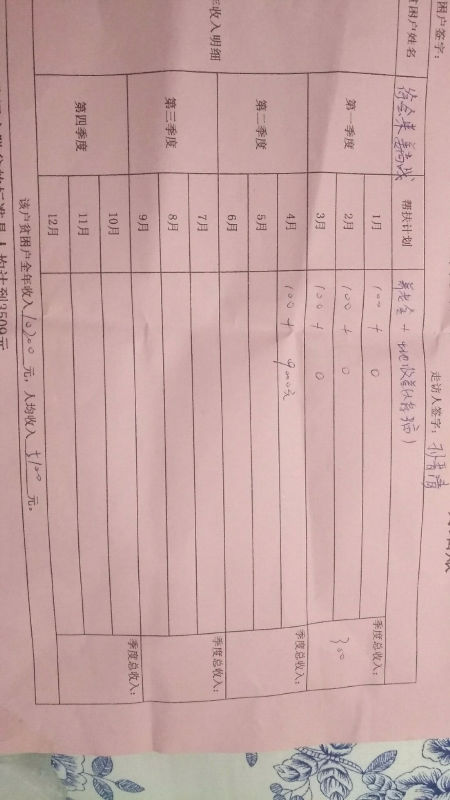 困户签字：
走访人签字：
贫困户姓名
帮扶计划
养老金 +
年收入明细
第一季度
1月
100 + 0
季度总收入：
300
2月
100 + 0
3月
100 + 0
第二季度
4月
100 + 9000元
季度总收入：
5月
6月
第三季度
7月
季度总收入：
8月
9月
第四季度
10月
季度总收入：
11月
12月
该户贫困户全年收入10200元，人均收入5100元。
的标准是人均达到3509元